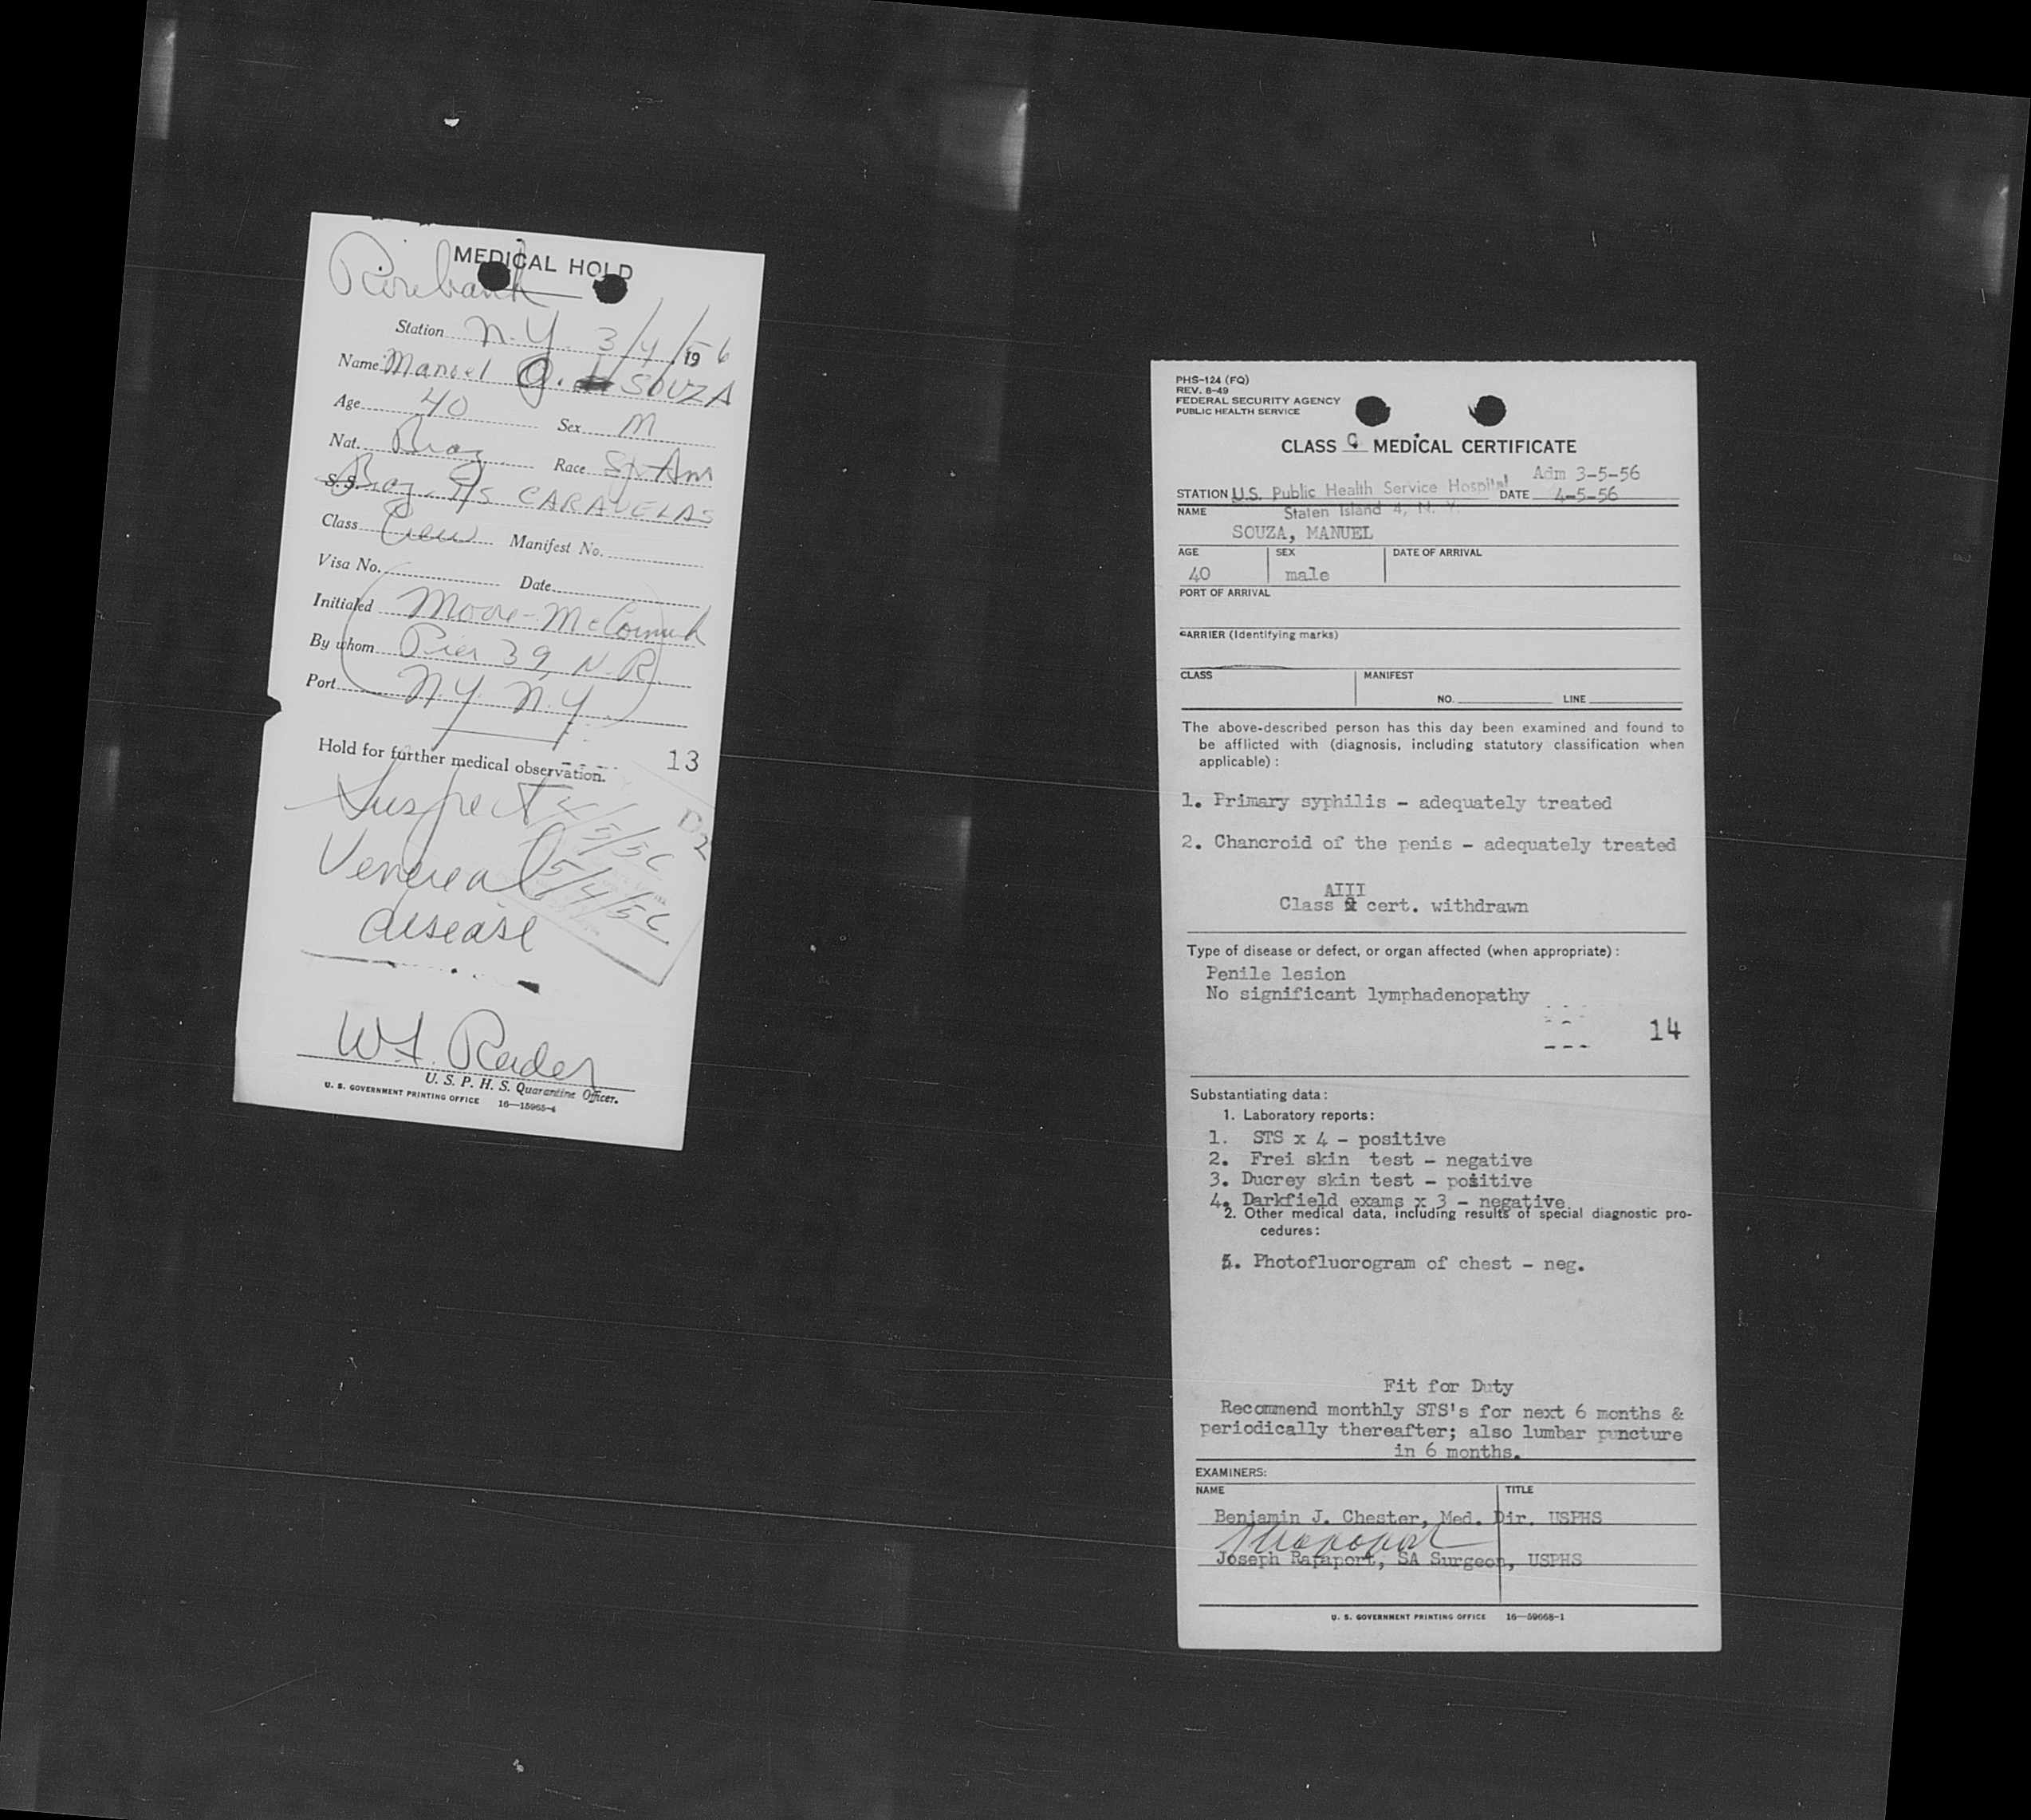 MEDICAL HOLD
Rosebank
Station N.Y. 3/4/1956
Name Manoel O. SOUZA
Age 40 Sex M
Nat. Braz Race Sp. Am
S.S. Braz S/S CARAVELAS
Class Crew Manifest No.
Visa No. Date
Initialed Moore-McCormick
By whom Pier 39, N.R.
Port N.Y. N.Y.
Hold for further medical observation.
13
Suspect
4/5/56
D2
Venereal
5/4/56
disease
W.F. Reeder
U. S. P. H. S. Quarantine Officer.
U. S. GOVERNMENT PRINTING OFFICE 16—15965-4
PHS-124 (FQ)
REV. 8-49
FEDERAL SECURITY AGENCY
PUBLIC HEALTH SERVICE
CLASS C MEDICAL CERTIFICATE
Adm 3-5-56
STATION U.S. Public Health Service Hospital DATE 4-5-56
Staten Island 4, N. Y.
NAME
SOUZA, MANUEL
AGE SEX DATE OF ARRIVAL
40 male
PORT OF ARRIVAL
CARRIER (Identifying marks)
CLASS MANIFEST
NO. LINE
The above-described person has this day been examined and found to
be afflicted with (diagnosis, including statutory classification when
applicable) :
1. Primary syphilis - adequately treated
2. Chancroid of the penis - adequately treated
AIII
Class cert. withdrawn
Type of disease or defect, or organ affected (when appropriate) :
Penile lesion
No significant lymphadenopathy
14
Substantiating data :
1. Laboratory reports:
1. STS x 4 - positive
2. Frei skin test - negative
3. Ducrey skin test - positive
4. Darkfield exams x 3 - negative
2. Other medical data, including results of special diagnostic pro-
cedures:
5. Photofluorogram of chest - neg.
Fit for Duty
Recommend monthly STS's for next 6 months &
periodically thereafter; also lumbar puncture
in 6 months.
EXAMINERS:
NAME TITLE
Benjamin J. Chester, Med. Dir. USPHS
Joseph Rapaport, SA Surgeon, USPHS
U. S. GOVERNMENT PRINTING OFFICE 16—59668-1